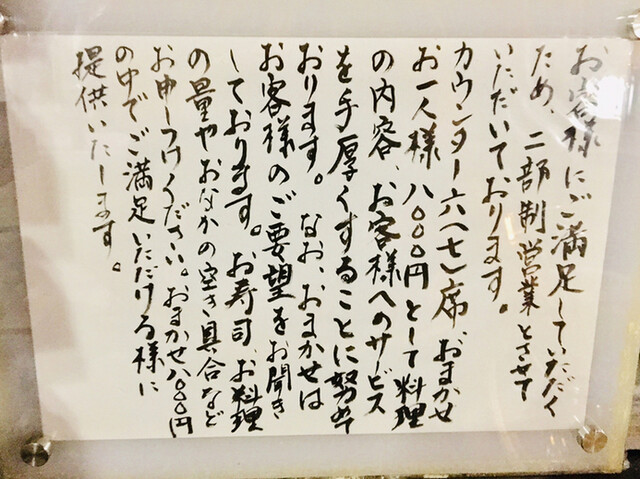 お客様にご満足していただく
ため、二部制営業とさせて
いただいております。
カウンター六〜七席、おまかせ
お一人様八〇〇〇円として料理
の内容、お客様へのサービス
を手厚くすることに努めて
おります。なお、おまかせは
お客様のご要望をお聞き
しております。お寿司、お料理
の量やおなかの空き具合など
お申しつけください。おまかせ八〇〇〇円
の中でご満足いただける様に
提供いたします。